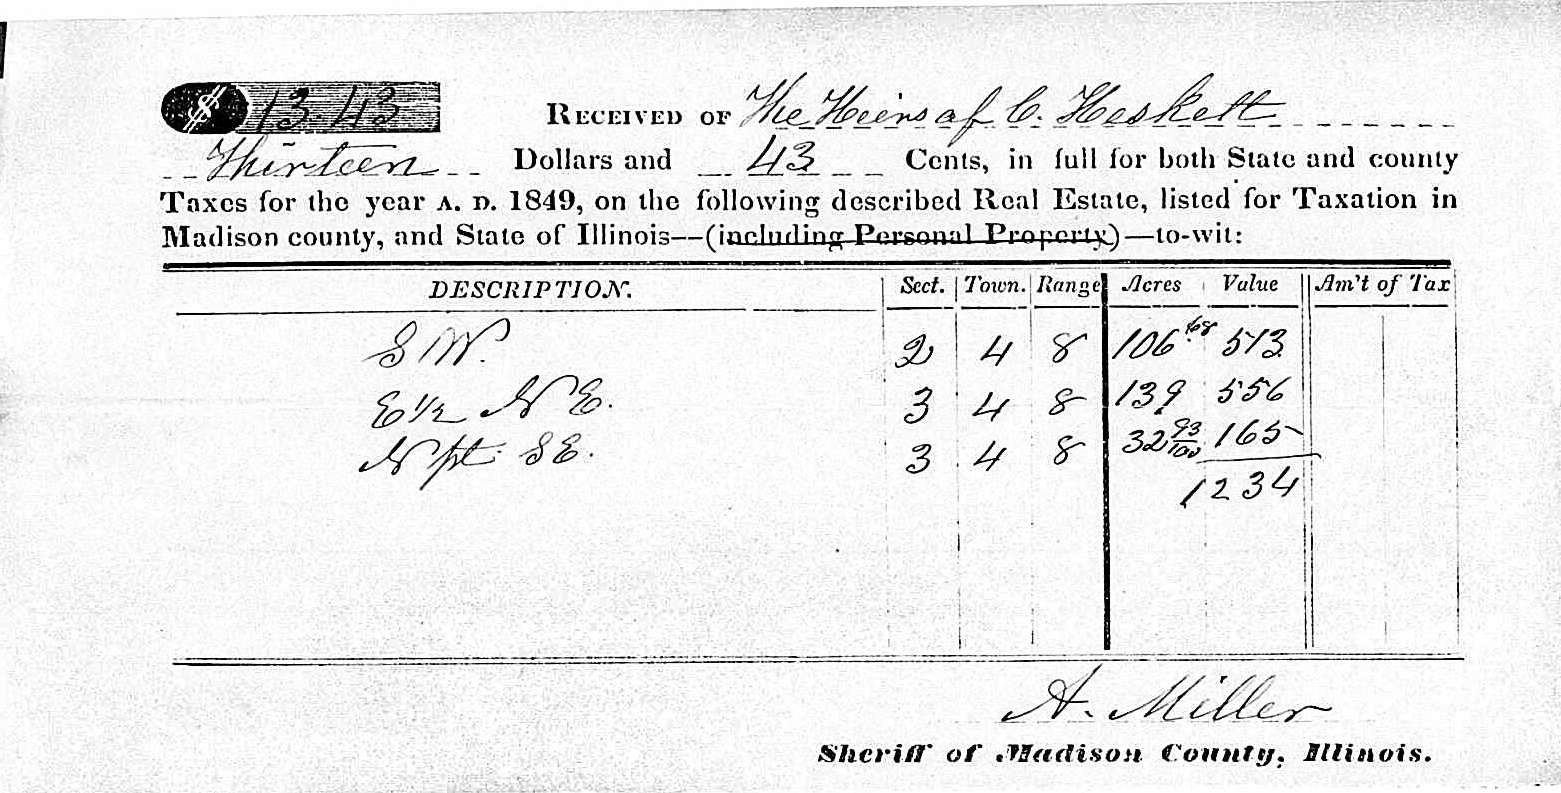 $ 13.43 RECEIVED OF The Heirs of C. Heskett
Thirteen Dollars and 43 Cents, in full for both State and county
Taxes for the year A. D. 1849, on the following described Real Estate, listed for Taxation in
Madison county, and State of Illinois—(including Personal Property)—to-wit:
DESCRIPTION. Sect. Town. Range Acres Value Am't of Tax
S W. 2 4 8 106.68 513
E 1/2 N E. 3 4 8 139 556
N pt. S E. 3 4 8 32 93/100 165
1234
A. Miller
Sheriff of Madison County, Illinois.